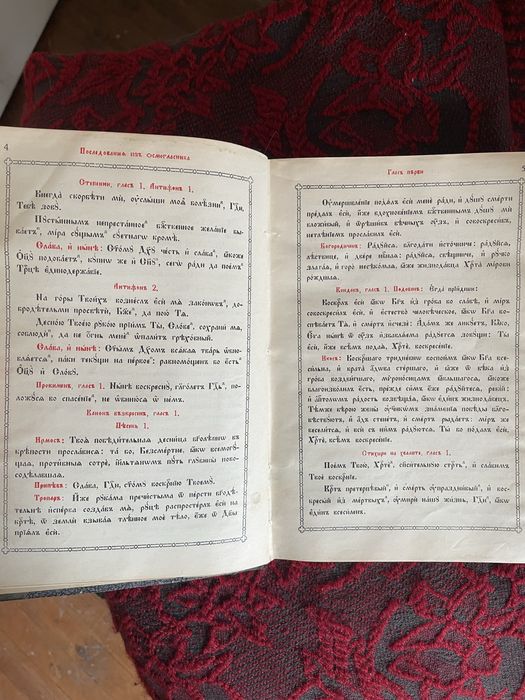 4
Послѣдованиѧ изъ Осмогласника
Степенни, гласъ 1. Антифѡнъ 1.
Внегда̀ скорбѣ́ти мѝ, ᲂу҆слы́ши моѧ̑ болѣ̑зни, Гдⷭ҇и,
Тебѣ̀ зовꙋ̀.
Пꙋсты́ннымъ непреста́нное бжⷭ҇твенное жела́ніе бы-
ва́етъ, мі́ра сꙋ́щымъ сꙋ́етнагѡ кромѣ̀.
Сла́ва, и҆ ны́нѣ: Ст҃о́мꙋ Дх҃ꙋ че́сть и҆ сла́ва, ꙗ҆́коже
Ѻ҆ц҃ꙋ̀ подоба́етъ, кꙋ́пнѡ же и҆ Сн҃ꙋ, сегѡ̀ ра́ди да пое́мъ
Трⷪ҇цѣ є҆динодержа́віе.
Антифѡнъ 2.
На го́ры Твои́хъ возне́слъ є҆сѝ мѧ̀ зако́нѡвъ, до-
бродѣ́тельми просвѣтѝ, Бж҃е, да пою́ Тѧ.
Десно́ю Твое́ю рꙋко́ю прїи́мъ Ты̀, Сло́ве, сохранѝ мѧ,
соблюдѝ, да не ѻ҆́гнь менѐ ѡ҆пали́тъ грѣхо́вный.
Сла́ва, и҆ ны́нѣ: Ст҃ы́мъ Дх҃омъ всѧ́каѧ тва́рь ѡ҆бно-
влѧ́етсѧ, па́ки текꙋ́щи на пе́рвое: равномо́щенъ бо є҆́сть
Ѻ҆ц҃ꙋ̀ и҆ Сло́вꙋ.
Прокименъ, гласъ 1. Ны́нѣ воскреснꙋ̀, глаго́летъ Гдⷭ҇ь, по-
ложꙋ́сѧ во спасе́ніе, не ѡ҆биню́сѧ ѡ҆ не́мъ.
Канонъ възкресенъ, гласъ 1.
Пѣснь 1.
І҆рмосъ: Твоѧ̀ побѣди́тельнаѧ десни́ца бг҃олѣ́пнѡ въ
крѣ́пости просла́висѧ: та̀ бо, Безсме́ртне, ꙗ҆́кѡ всемогꙋ́-
щаѧ, проти̑вныѧ сотрѐ, і҆и҃льтѧнѡмъ пꙋ́ть глꙋбины̀ ново-
содѣ́лавшаѧ.
Припѣвъ: Сла́ва, Гдⷭ҇и, ст҃о́мꙋ воскрⷭ҇нію Твоемꙋ̀.
Тропаръ: И҆́же рꙋка́ма пречи́стыма ѿ пе́рсти бг҃одѣ́-
тельнѣ и҆спе́рва созда́въ мѧ̀, рꙋ́цѣ распросте́рлъ є҆сѝ на
крⷭ҇тѣ̀, ѿ землѝ взыва́ѧ тлѣ́нное моѐ тѣ́ло, є҆́же ѿ Дв҃ы
прїѧ́лъ є҆сѝ.
Гласъ първи
5
Оу҆мерщвле́ніе под̾ѧ́лъ є҆сѝ менє̀ ра́ди, и҆ дꙋ́шꙋ сме́рти
преда́лъ є҆сѝ, и҆́же вдохнове́ніемъ бжⷭ҇твеннымъ дꙋ́шꙋ мѝ
вложи́вый, и҆ ѿрѣши́въ вѣ́чныхъ ᲂу҆́зъ, и҆ совоскреси́въ,
нетлѣ́ніемъ просла́вилъ є҆сѝ.
Богородиченъ: Ра́дꙋйсѧ, благода́ти и҆сто́чниче: ра́дꙋйсѧ,
лѣ́ствице, и҆ две́ре нбⷭ҇наѧ: ра́дꙋйсѧ, свѣ́щниче, и҆ рꙋ́чко
злата́ѧ, и҆ горо̀ несѣко́маѧ, ꙗ҆́же жизнода́вца Хрⷭ҇та̀ мі́рови
ро́ждшаѧ.
Кондакъ, гласъ 1. Подобенъ: Є҆гда̀ прїи́деши:
Воскрⷭ҇лъ є҆сѝ ꙗ҆́кѡ Бг҃ъ и҆з̾ гро́ба во сла́вѣ, и҆ мі́ръ
совоскреси́лъ є҆сѝ, и҆ є҆стество̀ человѣ́ческое, ꙗ҆́кѡ Бг҃а во-
спѣва́етъ Тѧ̀, и҆ сме́рть и҆счезѐ: А҆да́мъ же ликꙋ́етъ, Влⷣко,
Є҆́ѵа ны́нѣ ѿ ᲂу҆́зъ и҆збавлѧ́ема ра́дꙋетсѧ зовꙋ́щи: Ты̀
є҆сѝ, и҆́же всѣ̑мъ подаѧ̀, Хрⷭ҇тѐ, воскресе́ніе.
Ікосъ: Воскрⷭ҇шаго тридне́внѡ воспои́мъ ꙗ҆́кѡ Бг҃а все-
си́льна, и҆ врата̀ а҆́дѡва сте́ршаго, и҆ ꙗ҆̀же ѿ вѣ́ка и҆з̾
гро́ба воздви́гшаго, мѷроно́сицамъ ꙗ҆́вльшагосѧ, ꙗ҆́коже
благоизво́лилъ є҆́сть, пре́жде си̑мъ є҆́же ра́дꙋйтесѧ, рекі́й:
и҆ а҆пⷭ҇лѡмъ ра́дость возвѣща́ѧ, ꙗ҆́кѡ є҆ди́нъ жизнода́вецъ.
Тѣ́мже вѣ́рою жєны̀ ᲂу҆чн҃кѡ́мъ зна́мєніѧ побѣ́ды благо-
вѣствꙋ́ютъ, и҆ а҆́дъ стене́тъ, и҆ сме́рть рыда́етъ: мі́ръ же
весели́тсѧ, и҆ всѝ съ ни́мъ ра́дꙋютсѧ: Ты́ бо по́далъ є҆сѝ,
Хрⷭ҇тѐ, всѣ̑мъ воскресе́ніе.
Стихири на хвалите, гласъ 1.
Пое́мъ Твою̀, Хрⷭ҇тѐ, сп҃си́тельнꙋю стрⷭ҇ть, и҆ сла́вимъ
Твоѐ воскрⷭ҇ніе.
Крⷭ҇тъ претерпѣ́вый, и҆ сме́рть ᲂу҆праздни́вый, и҆ во-
скрⷭ҇ый и҆з̾ ме́ртвыхъ, ᲂу҆мирѝ на́шꙋ жи́знь, Гдⷭ҇и, ꙗ҆́кѡ
є҆ди́нъ всеси́ленъ.